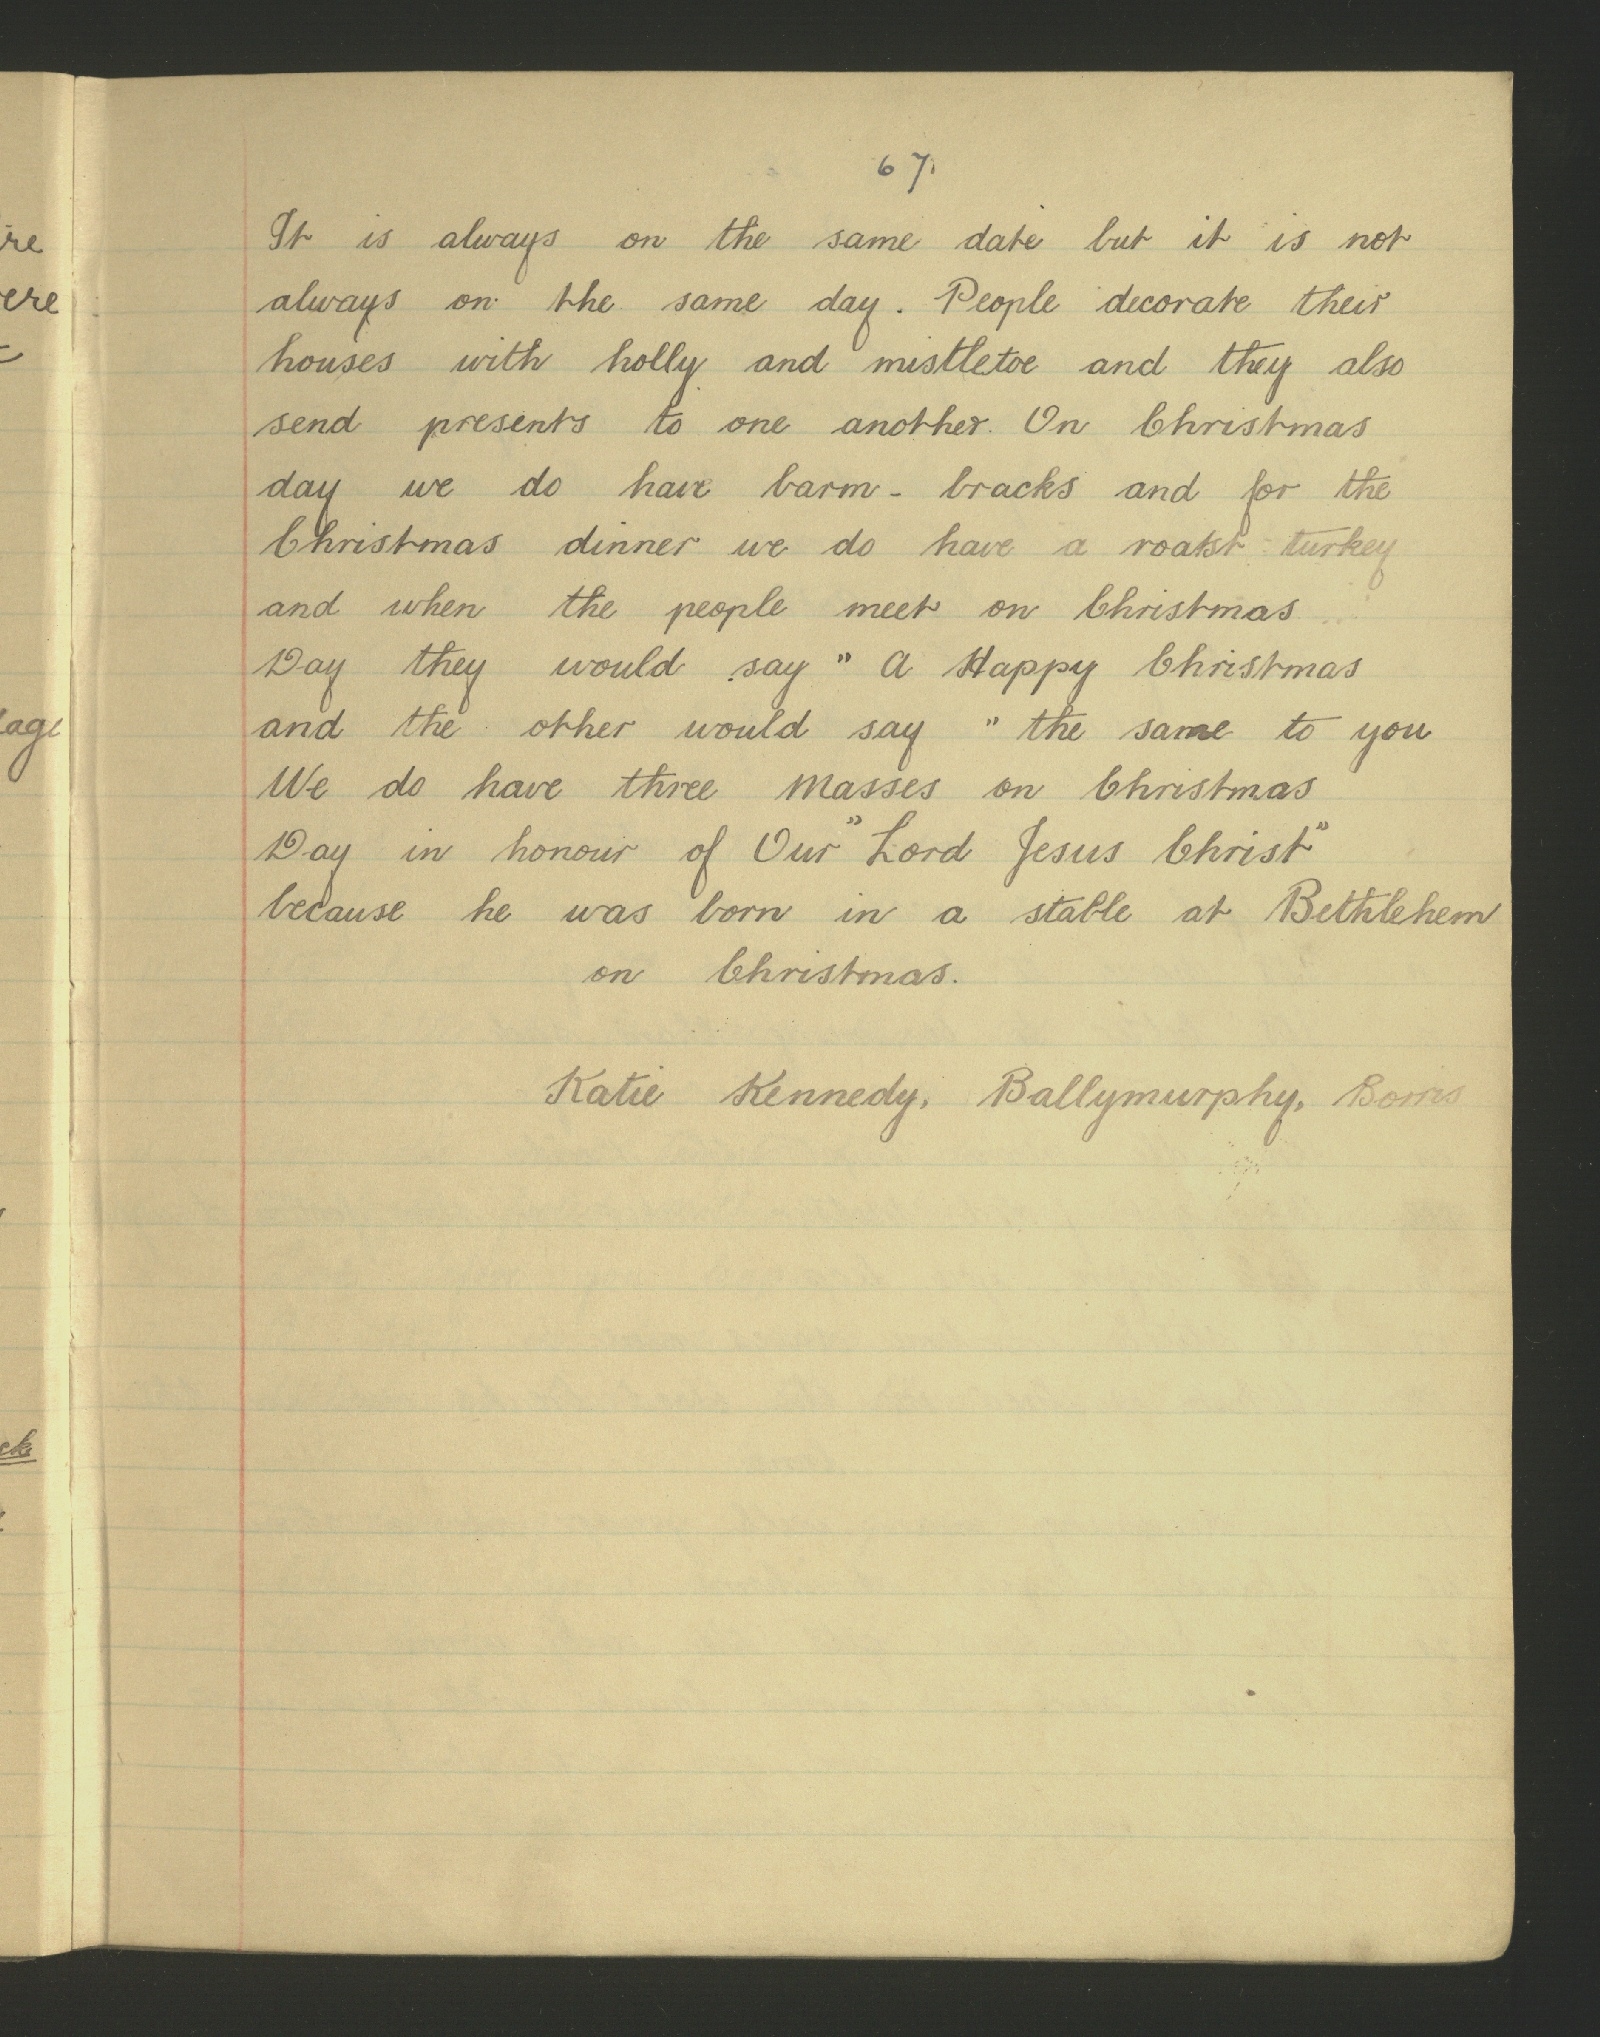 67.
It is always on the same date but it is not
always on the same day. People decorate their
houses with holly and mistletoe and they also
send presents to one another. On Christmas
day we do have barm-bracks and for the
Christmas dinner we do have a roatst turkey
and when the people meet on Christmas
Day they would say " A Happy Christmas
and the other would say " the same to you
We do have three Masses on Christmas
Day in honour of Our "Lord Jesus Christ"
because he was born in a stable at Bethlehem
on Christmas.
Katie Kennedy, Ballymurphy, Borris